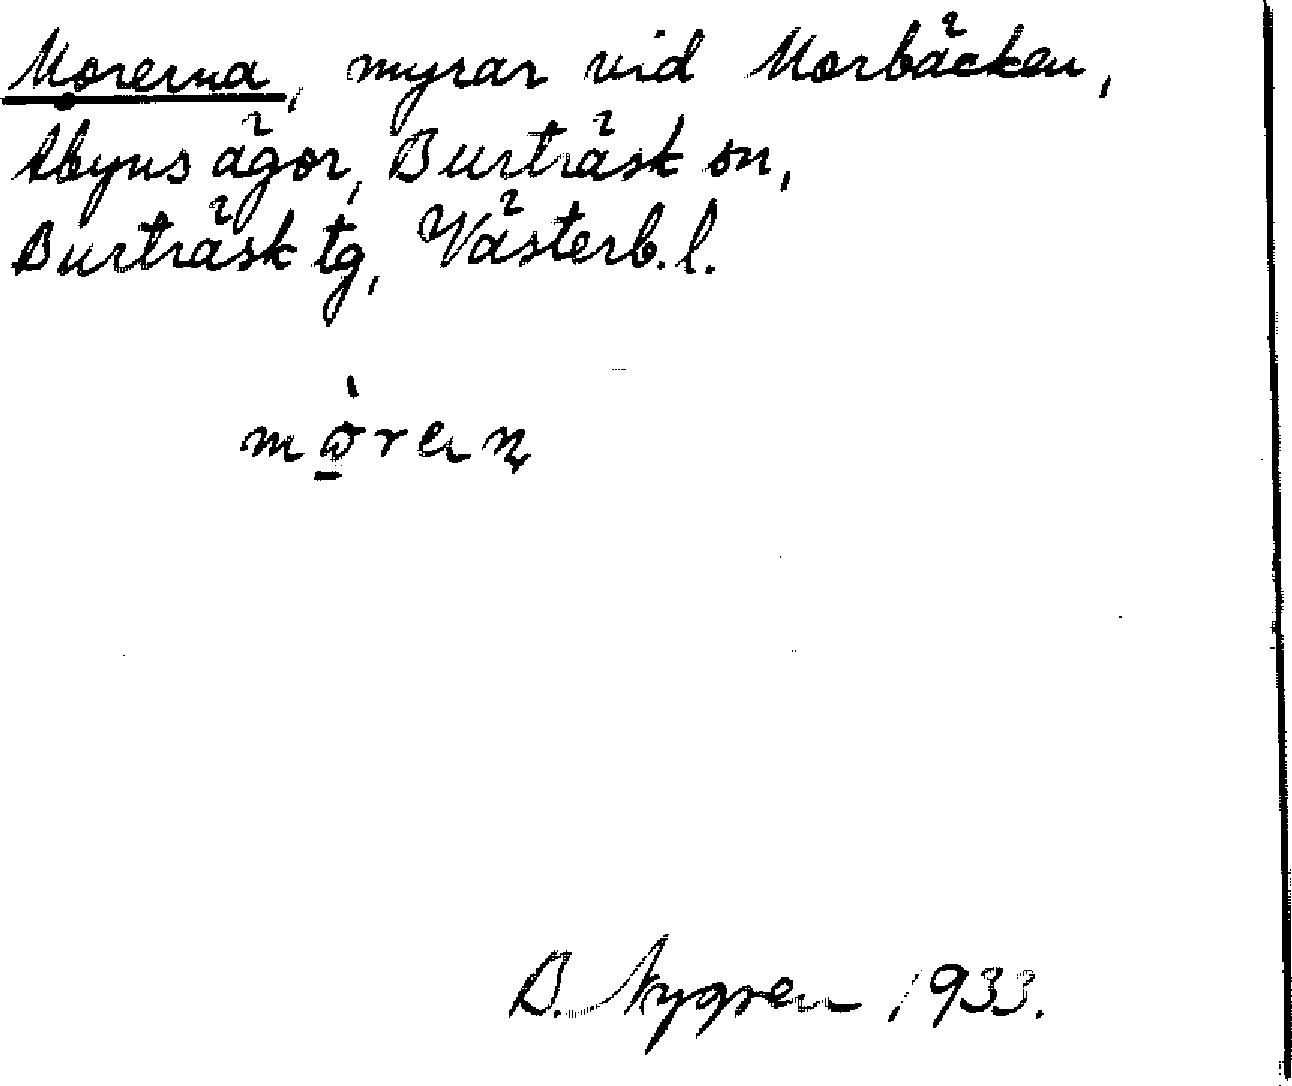 Morerna, myrar vid Morbäcken,
Åbyns ägor, Burträsk sn,
Burträsk tg, Västerb. l.
B. Nygren 1933.